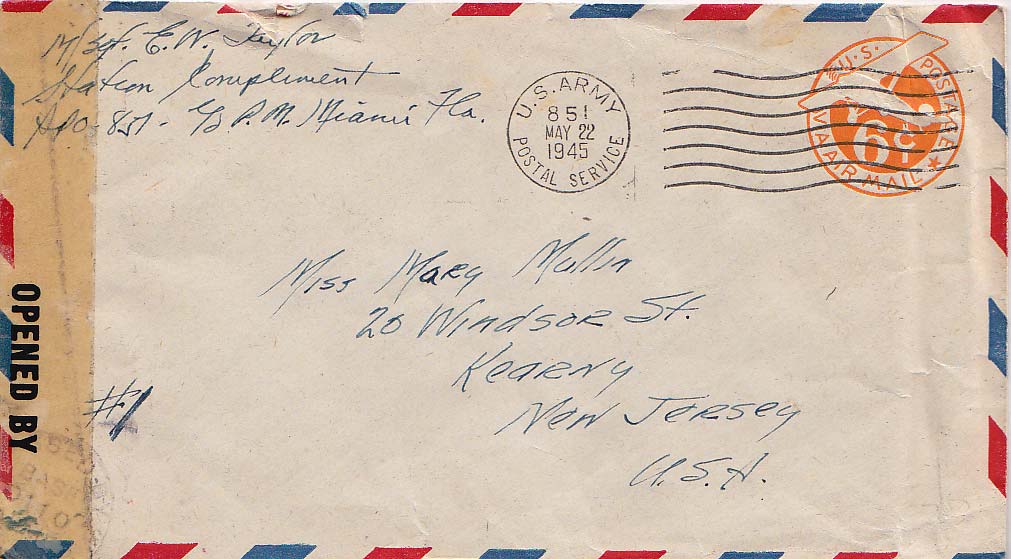 M/Sgt. E. W. Taylor
Station Compliment
APO 851 - c/o P.M. Miami Fla.
U.S. ARMY
851
MAY 22
1945
POSTAL SERVICE
U.S. POSTAGE
6¢
VIA AIR MAIL
Miss Mary Mullin
20 Windsor St.
Kearny
New Jersey
U.S.A.
#1
OPENED BY
BASE